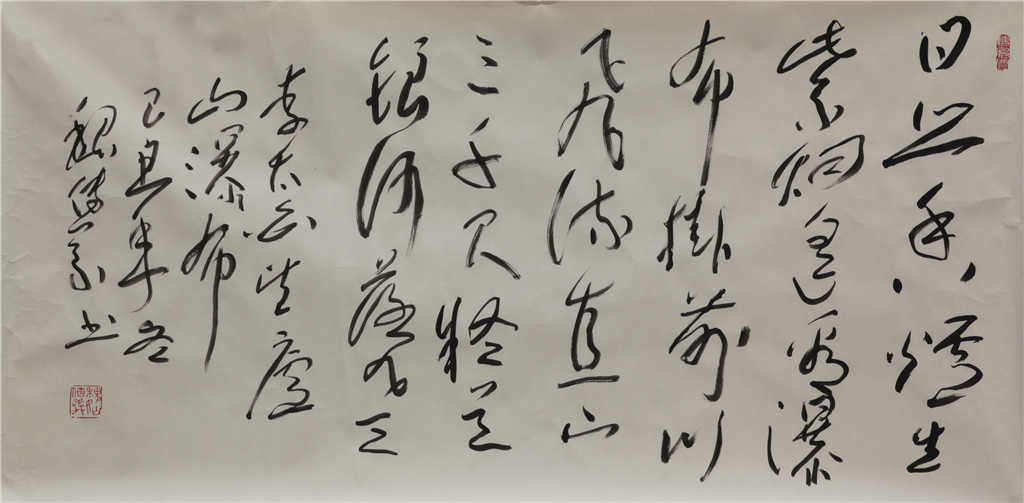 日照香爐生
紫烟遥看瀑
布掛前川
飛流直下
三千尺疑是
銀河落九天
李太白望廬
山瀑布
己丑年冬
魏傳義書